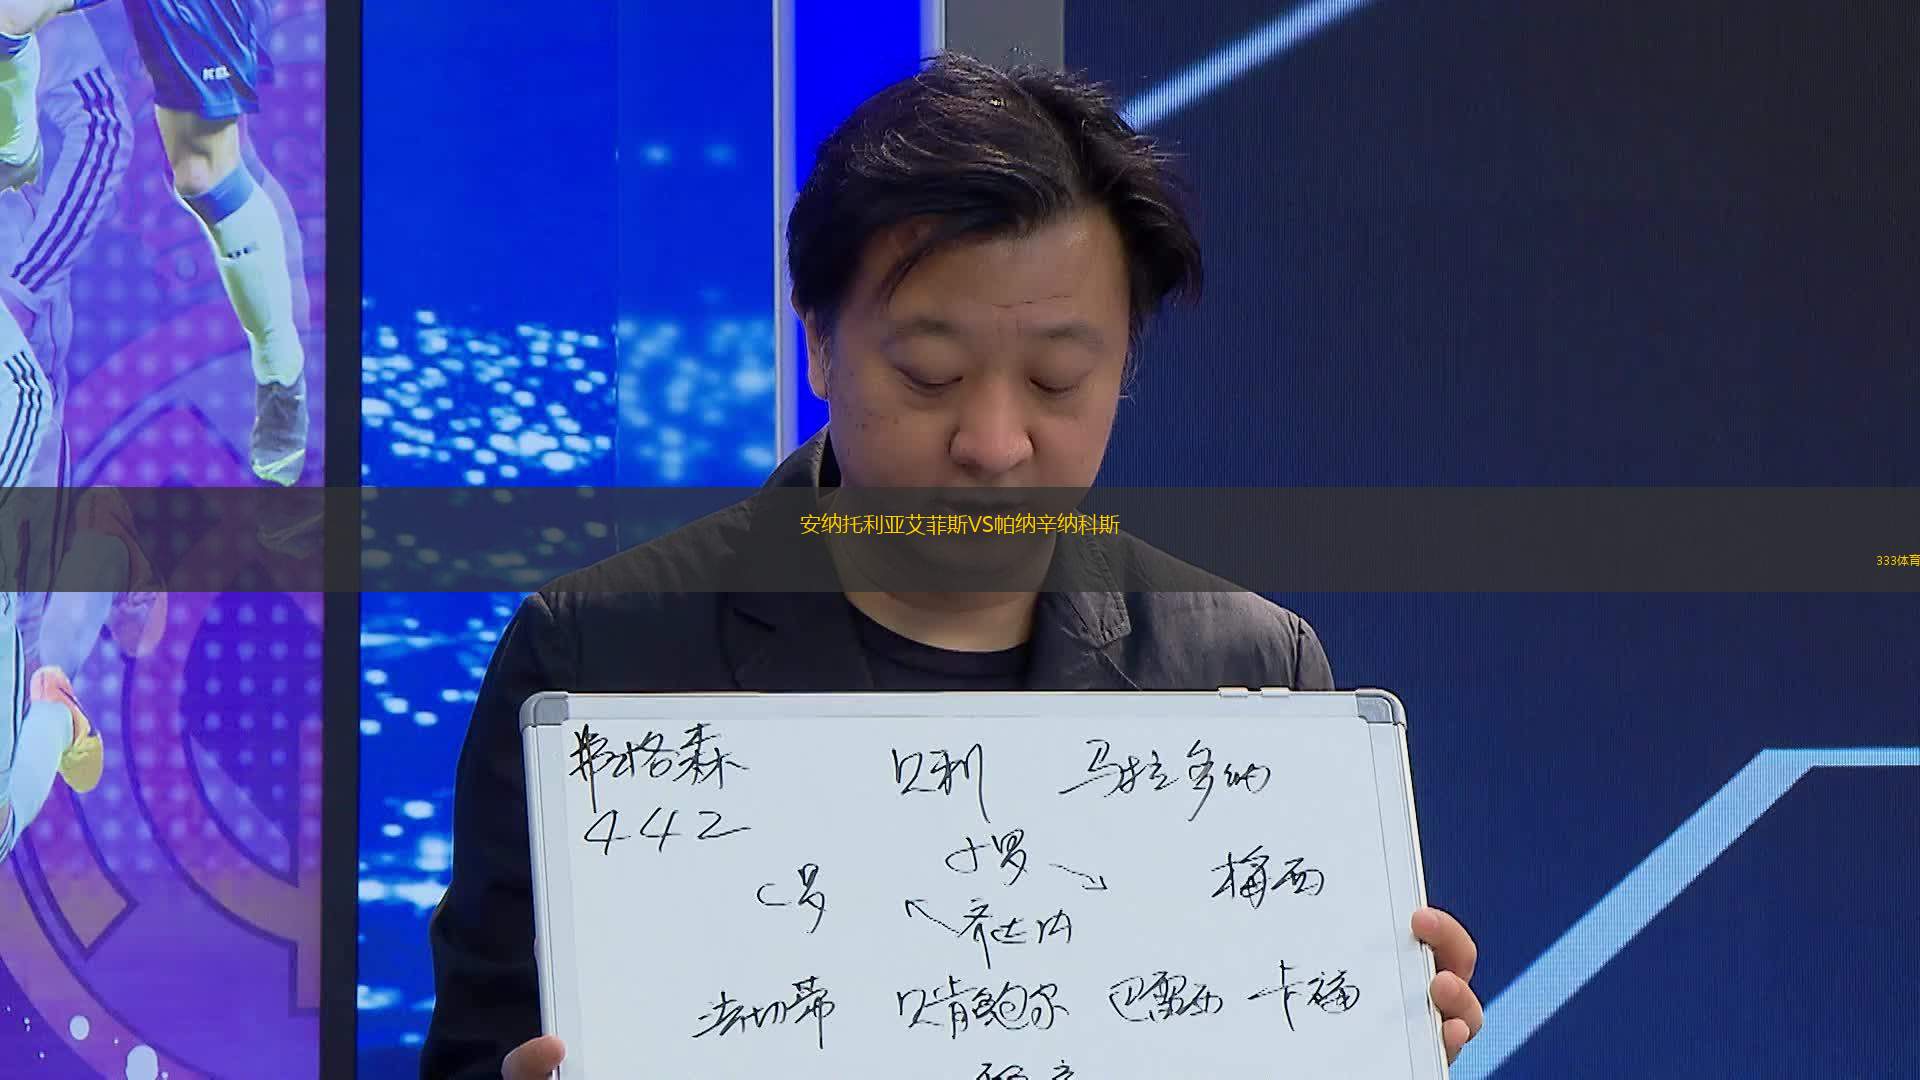 安纳托利亚艾菲斯VS帕纳辛纳科斯
333体育
弗格森 贝利 马拉多纳
442
小罗
C罗 梅西
齐达内
法切蒂 贝肯鲍尔 巴雷西 卡福